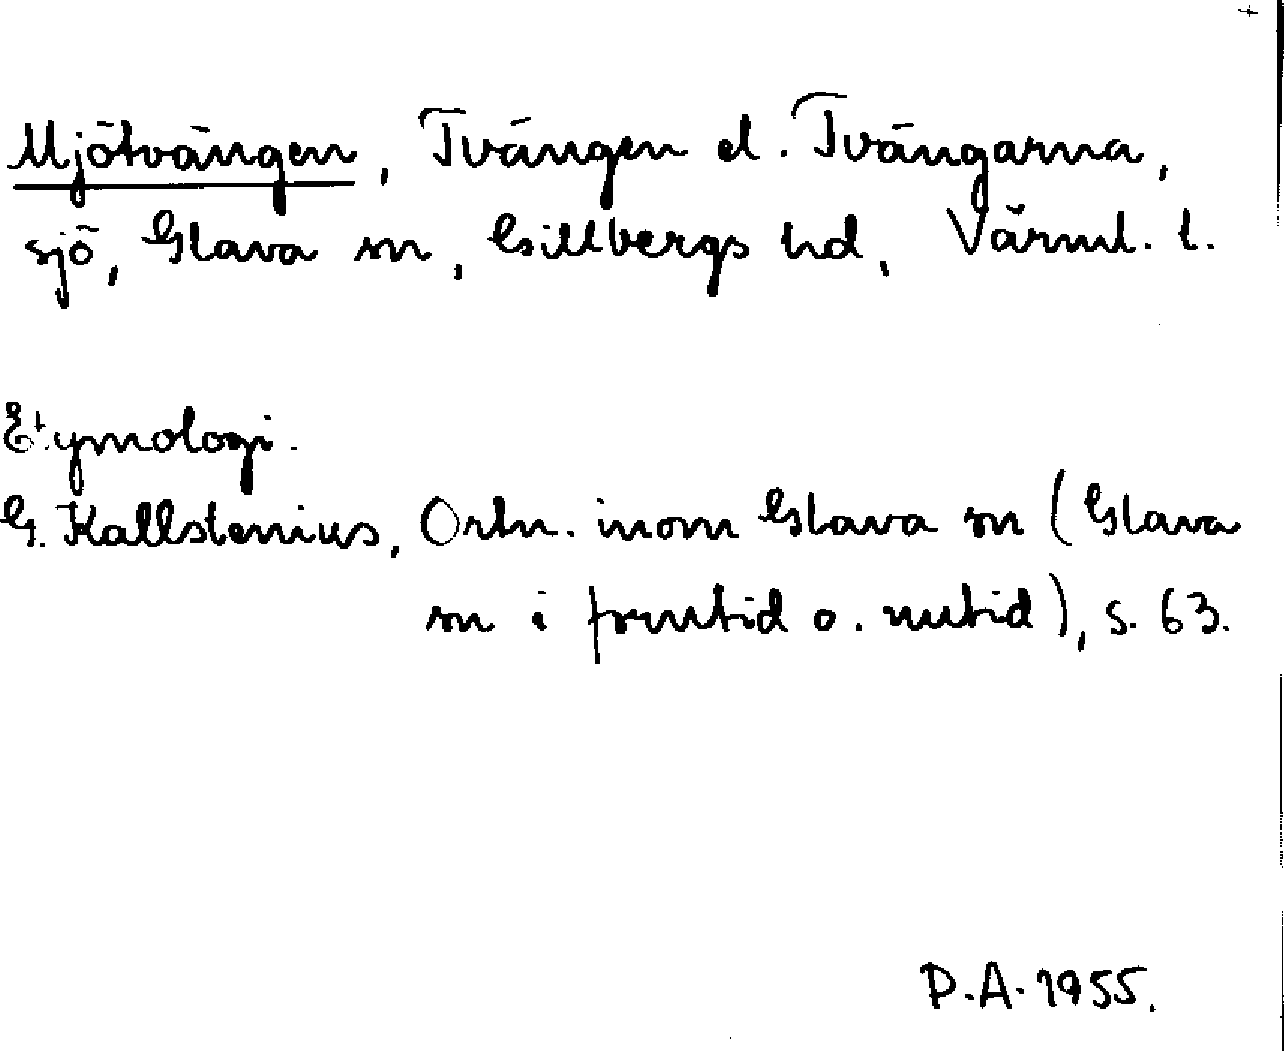 Mjötvängen, Tvängen el. Tvängarna,
sjö, Glava sn, Gillbergs hd, Värml. l.
Etymologi.
G. Kallstenius, Ortn. inom Glava sn (Glava
sn i forntid o. nutid), s. 63.
P.A. 1955.